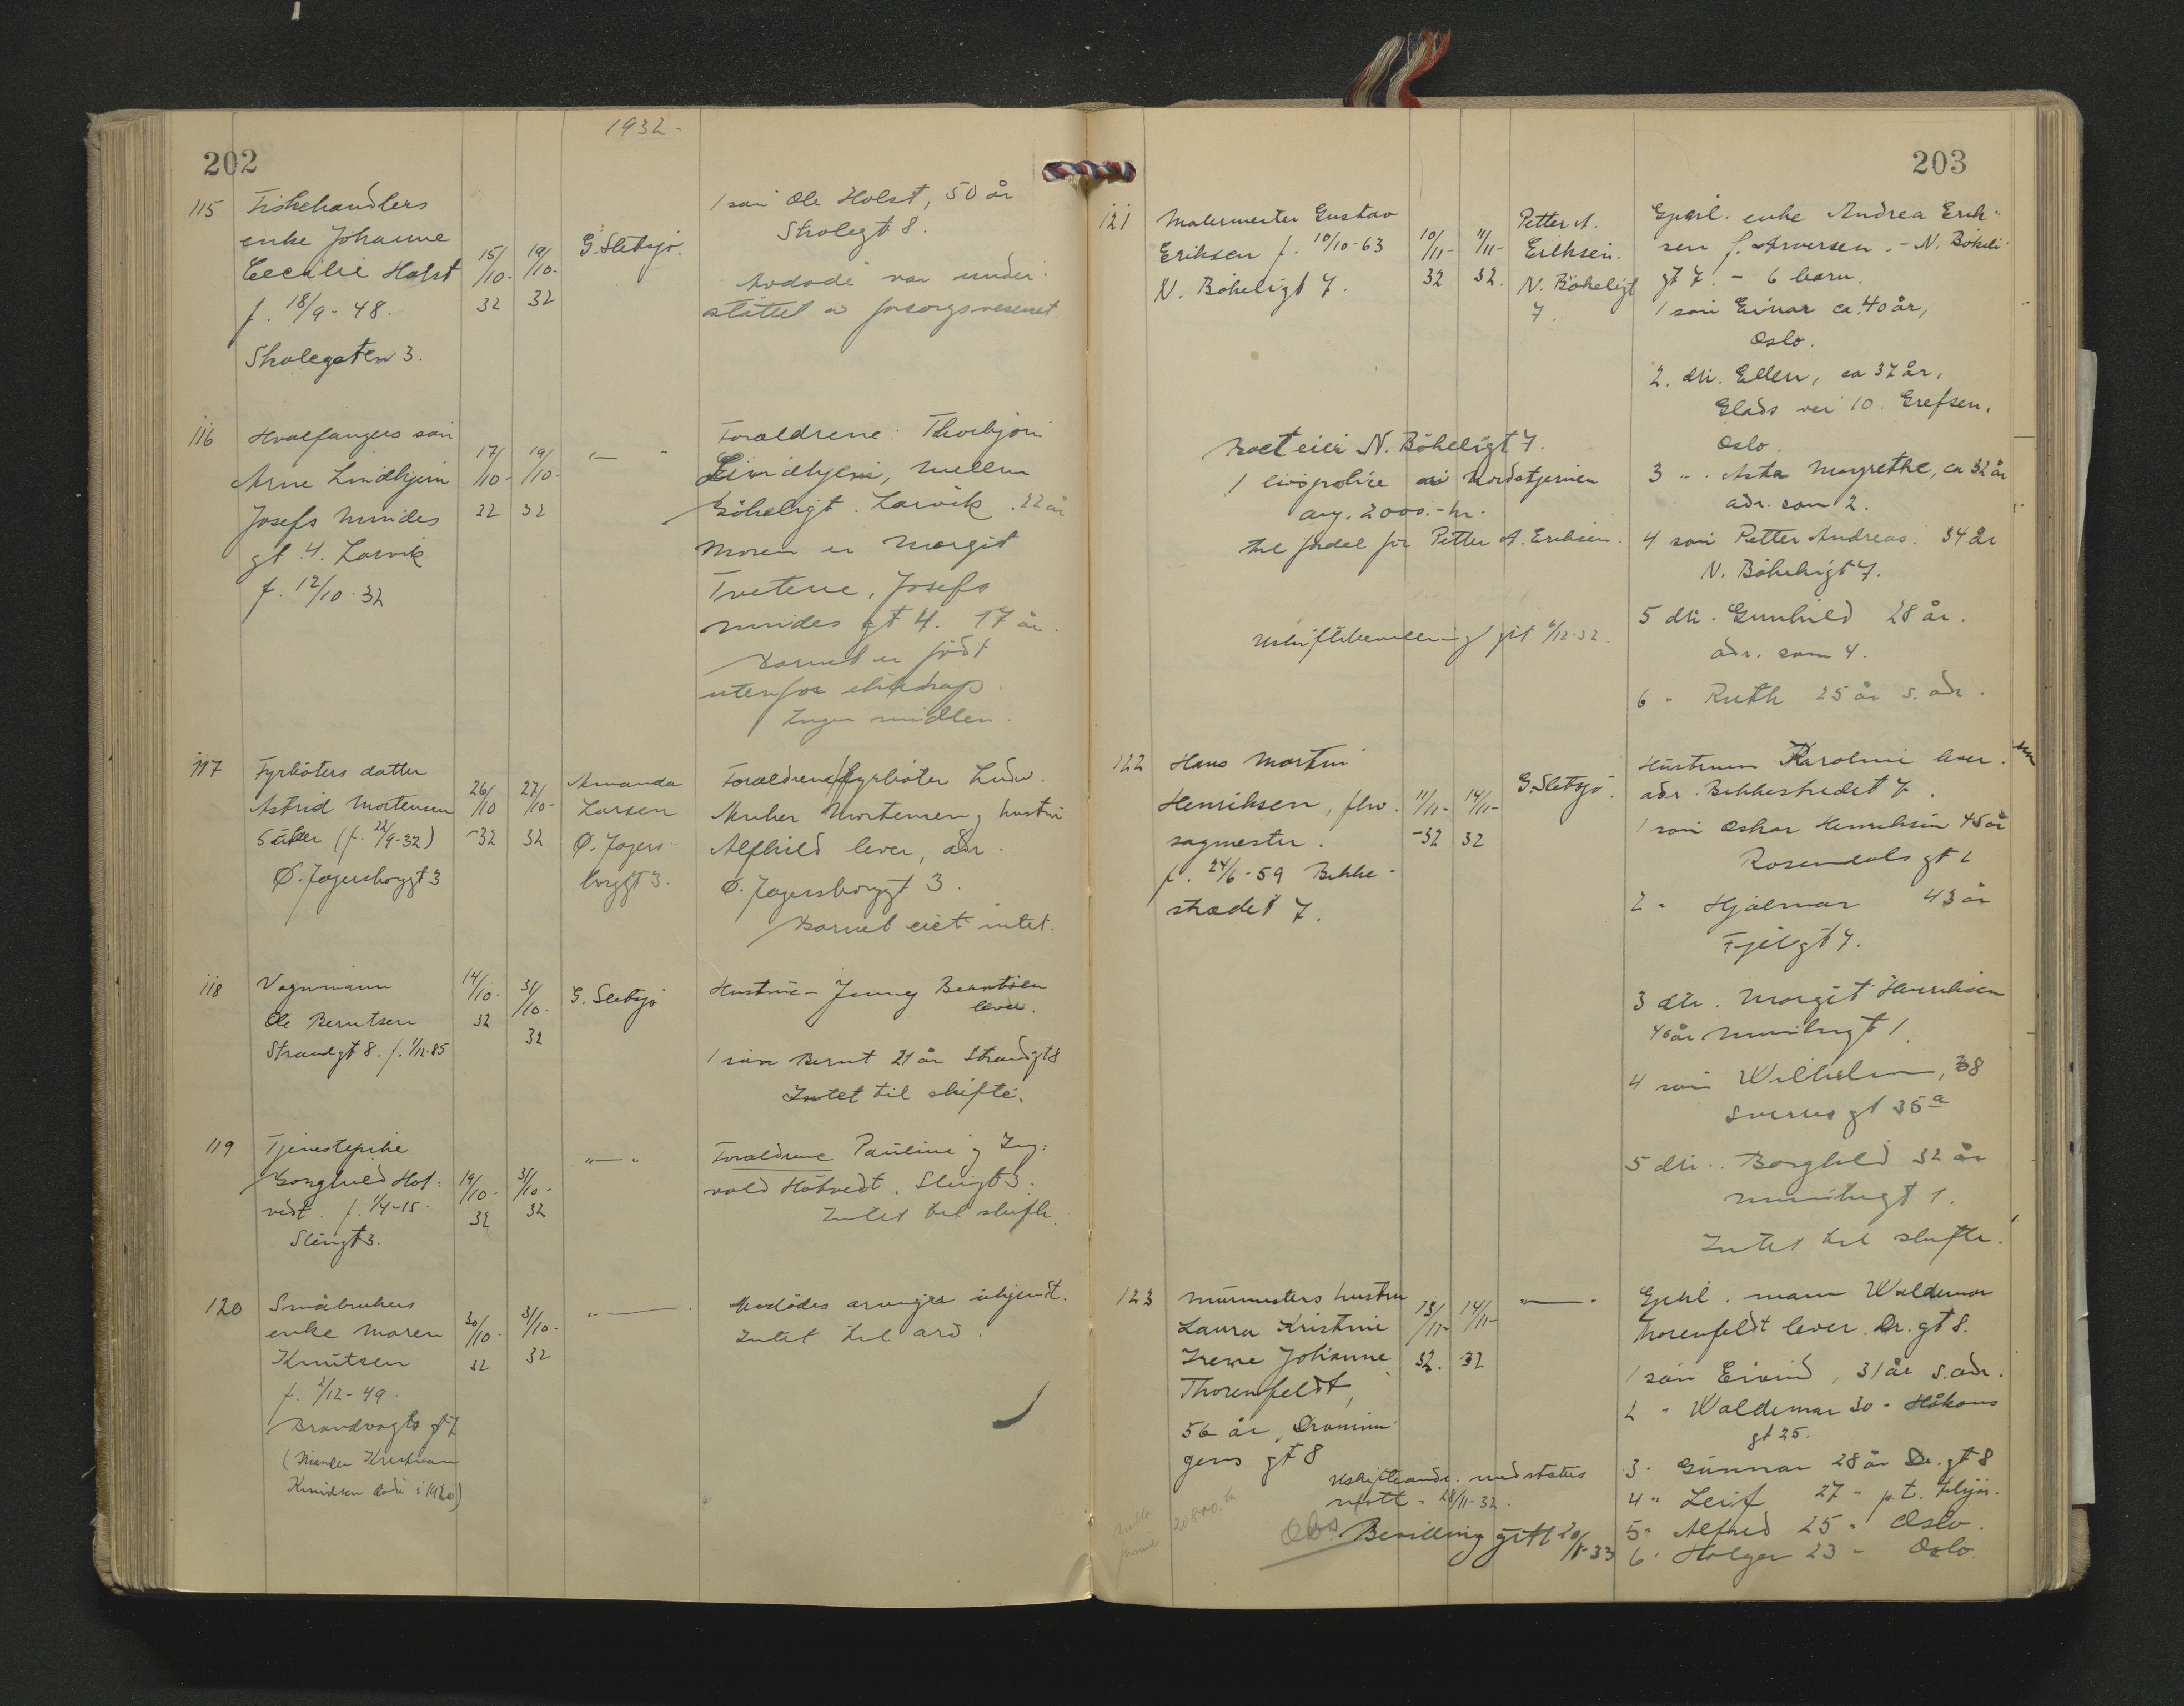 1932-
202
115 Fiskehandlers
enke Johanne
Cecilie Holst
f. 18/9-48.
Skolegaten 3.
15/10-32
19/10-32
G. Sletsjø.
1 søn Ole Holst, 50 år
Skolegt 8.
Avdøde var under-
støttet av forsorgsvesenet.
116 Hvalfangers søn
Arne Lindhjem
Josefs Mindes
gt. 4. Larvik
f. 12/10-32
17/10-32
19/10-32
Forældrene: Thorbjørn
Lindhjem, Mellem
Bøkeligt. Larvik. 22 år
Moren er Margit
Tvetene, Josefs
Mindes gt 4. 17 år.
Barnet er født
utenfor ekteskap.
Ingen midler.
117 Fyrbøters datter
Astrid Mortensen
Säker (f. 22/9-32)
Ø. Jegersborggt 3
26/10-32
27/10-32
Amanda
Larsen
Ø. Jegers-
borggt 3.
Forældrene fyrbøter Ludv.
Mortensen og hustru
Alfhild lever, adr.
Ø. Jegersborggt 3.
Barnet eiet intet.
118 Vognmann
Ole Berntsen
Strandgt 8. f. 1/12-85
14/10-32
31/10-32
G. Sletsjø
Hustru - Jenny Berntsen
lever.
1 søn Bernt 21 år Strandgt 8
Intet til skifte.
119 Tjenestepike
Borghild Hot-
vedt. f. 1/4-15.
Slengt 3.
19/10-32
31/10-32
" — "
Forældrene Pauline og Ing-
vald Hotvedt. Slengt 3.
Intet til skifte.
120 Småbrukers
enke Maren
Knutsen
f. 2/12-49.
Brandvagts gt 7
(Manden Kristian
Knudsen døde i 1920)
30/10-32
31/10-32
" — "
Avdødes arvinger ukjendt.
Intet til arv.
203
121 Malermester Gustav
Eriksen f. 10/10-63
N. Bøkeligt 7.
10/11-32
11/11-32.
Petter A.
Eriksen.
N. Bøkeligt
7.
Gjenl. enke Andrea Erik-
sen f. Arversen. - N. Bøkeli-
gt 7. - 6 barn.
1 søn Einar ca. 40 år,
Oslo.
2. dtr. Ellen, ca 37 år,
Glads vei 10. Grefsen,
Oslo.
3 " Asta Margrethe, ca 32 år
adr. som 2.
4 søn Petter Andreas. 34 år
N. Bøkeligt 7.
5 dtr. Gunhild 28 år.
adr. som 4.
6 " Ruth 25 år s. adr.
Boet eier N. Bøkeligt 7.
1 livspolise i Nordstjernen
2000.- kr.
til fordel for Petter A. Eriksen.
Uskiftebevilling git 6/12-32.
122 Hans Martin
Henriksen, fhv.
sagmester.
f. 24/6-59 Bekke-
stredet 7.
11/11-32
14/11-32
G. Sletsjø.
Hustruen Karoline lever.
adr. Bekkestredet 7.
1 søn Oskar Henriksen 45 år
Rosendals gt 2
2 " Hjalmar 43 år
Fjelgt 7.
3 dtr. Margit Henriksen
40 år Munkegt 1.
4 søn Wilhelm, 38
Sverres gt 35a
5 dtr. Borghild 32 år
Munkegt 1.
Intet til skifte.
123 Murmesters hustru
Laura Kristine
Irene Johanne
Thorenfeldt,
56 år, Dronnin-
gens gt 8
13/11-32.
14/11-32
" — "
Gjenl. mann Waldemar
Thorenfeldt lever. Dr. gt 8.
1 søn Eivind, 31 år s. adr.
2 " Waldemar 30 " Håkons
gt 25.
3 " Gunnar 28 år Dr. gt 8
4 " Leif 27 " p.t. tilsjøs.
5 " Alfred 25 " Oslo.
6 " Holger 23 " Oslo.
Uskifteandr. med status
mott. 28/11-32.
Obs Bevilling gitt 20/1-33